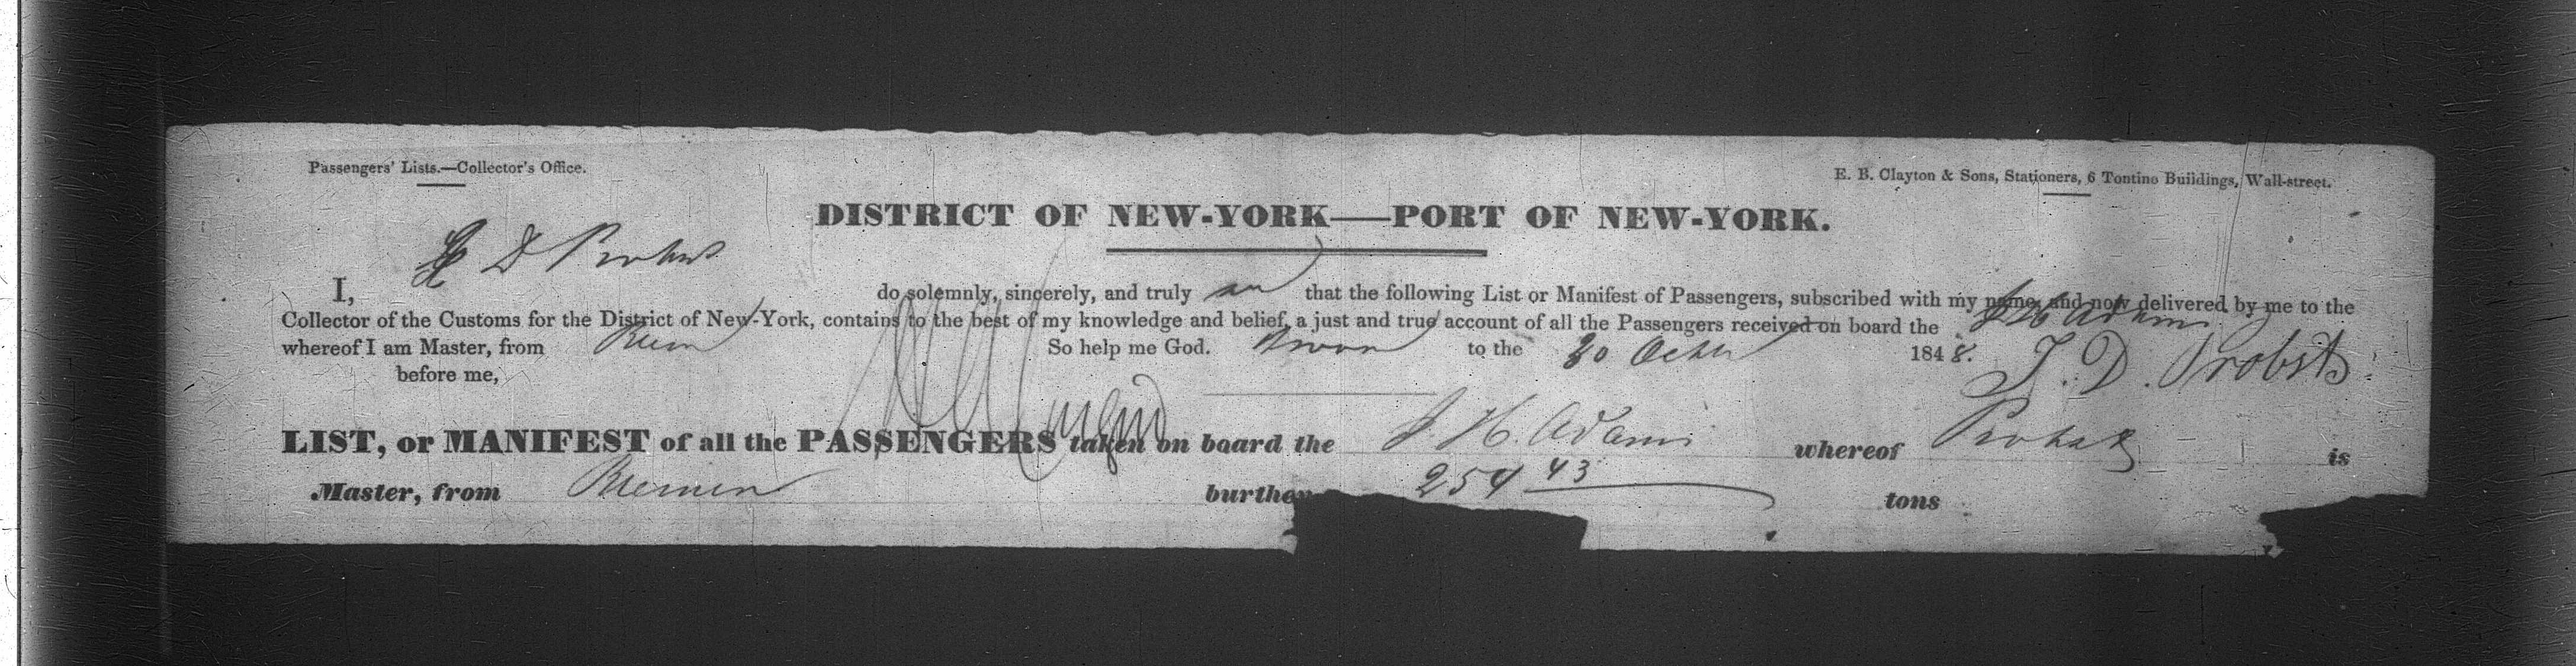 Passengers' Lists.—Collector's Office.
E. B. Clayton & Sons, Stationers, 6 Tontine Buildings, Wall-street.
DISTRICT OF NEW-YORK—PORT OF NEW-YORK.
I, D Probst do solemnly, sincerely, and truly that the following List or Manifest of Passengers, subscribed with my name, and now delivered by me to the
Collector of the Customs for the District of New-York, contains to the best of my knowledge and belief, a just and true account of all the Passengers received on board the J H Adami
whereof I am Master, from Brem So help me God. Sworn to the 30 Octbr 1848.
J. D. Probst
before me,
LIST, or MANIFEST of all the PASSENGERS taken on board the J. H. Adami whereof Probst is
Master, from Bremen burthen 254 43 tons